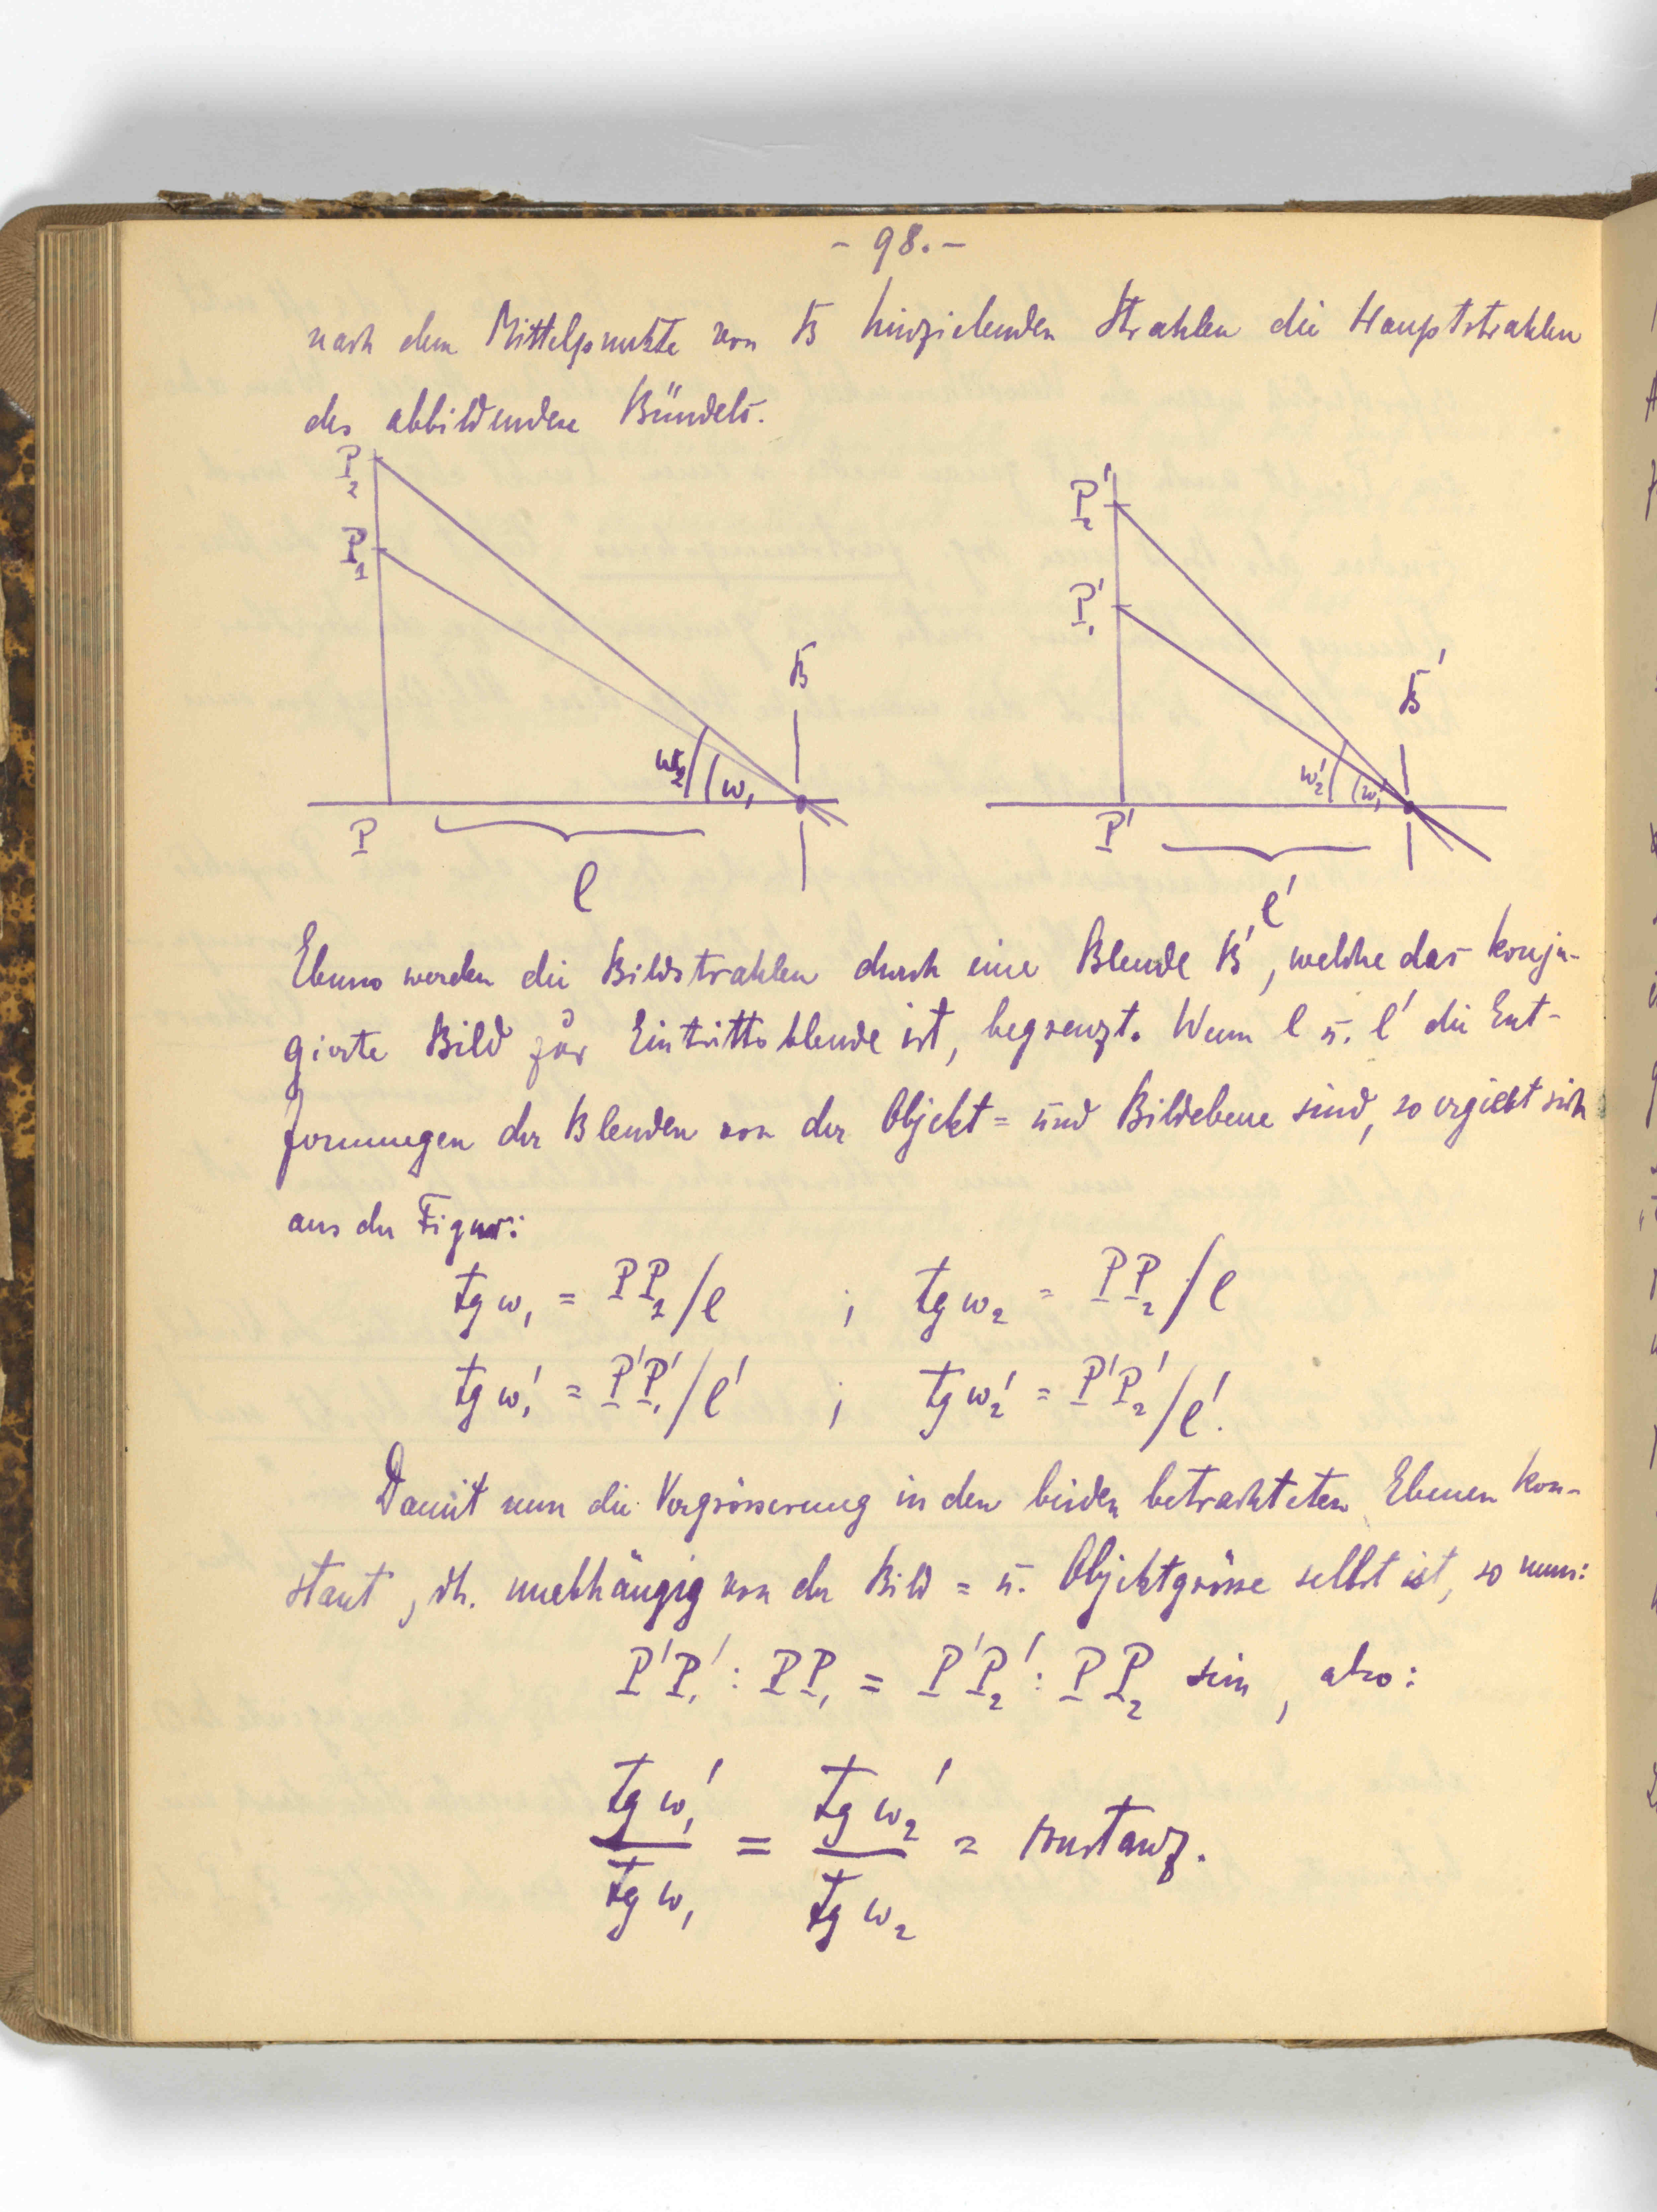 - 98. -
nach dem Mittelpunkte von B hinzielenden Strahlen die Hauptstrahlen
des abbildenden Bündels.
P₂
P₁
B
w₂
w₁
P
l
P₂'
P₁'
B'
w₂'
w₁'
P'
l'
Ebenso werden die Bildstrahlen durch eine Blende B', welche das konju-
gierte Bild zur Eintrittsblende ist, begrenzt. Wenn l u. l' die Ent-
fernungen der Blenden von der Objekt= und Bildebene sind, so ergiebt sich
aus der Figur:
tg w₁ = PP₁/l ; tg w₂ = PP₂/l
tg w₁' = P'P₁'/l' ; tg w₂' = P'P₂'/l'.
Damit nun die Vergrösserung in den beiden betrachteten Ebenen kon-
stant, dh. unabhängig von der Bild = u. Objektgrösse selbst ist, so muss:
P'P₁' : PP₁ = P'P₂' : PP₂ sein, also:
tg w₁' / tg w₁ = tg w₂' / tg w₂ = constanz.